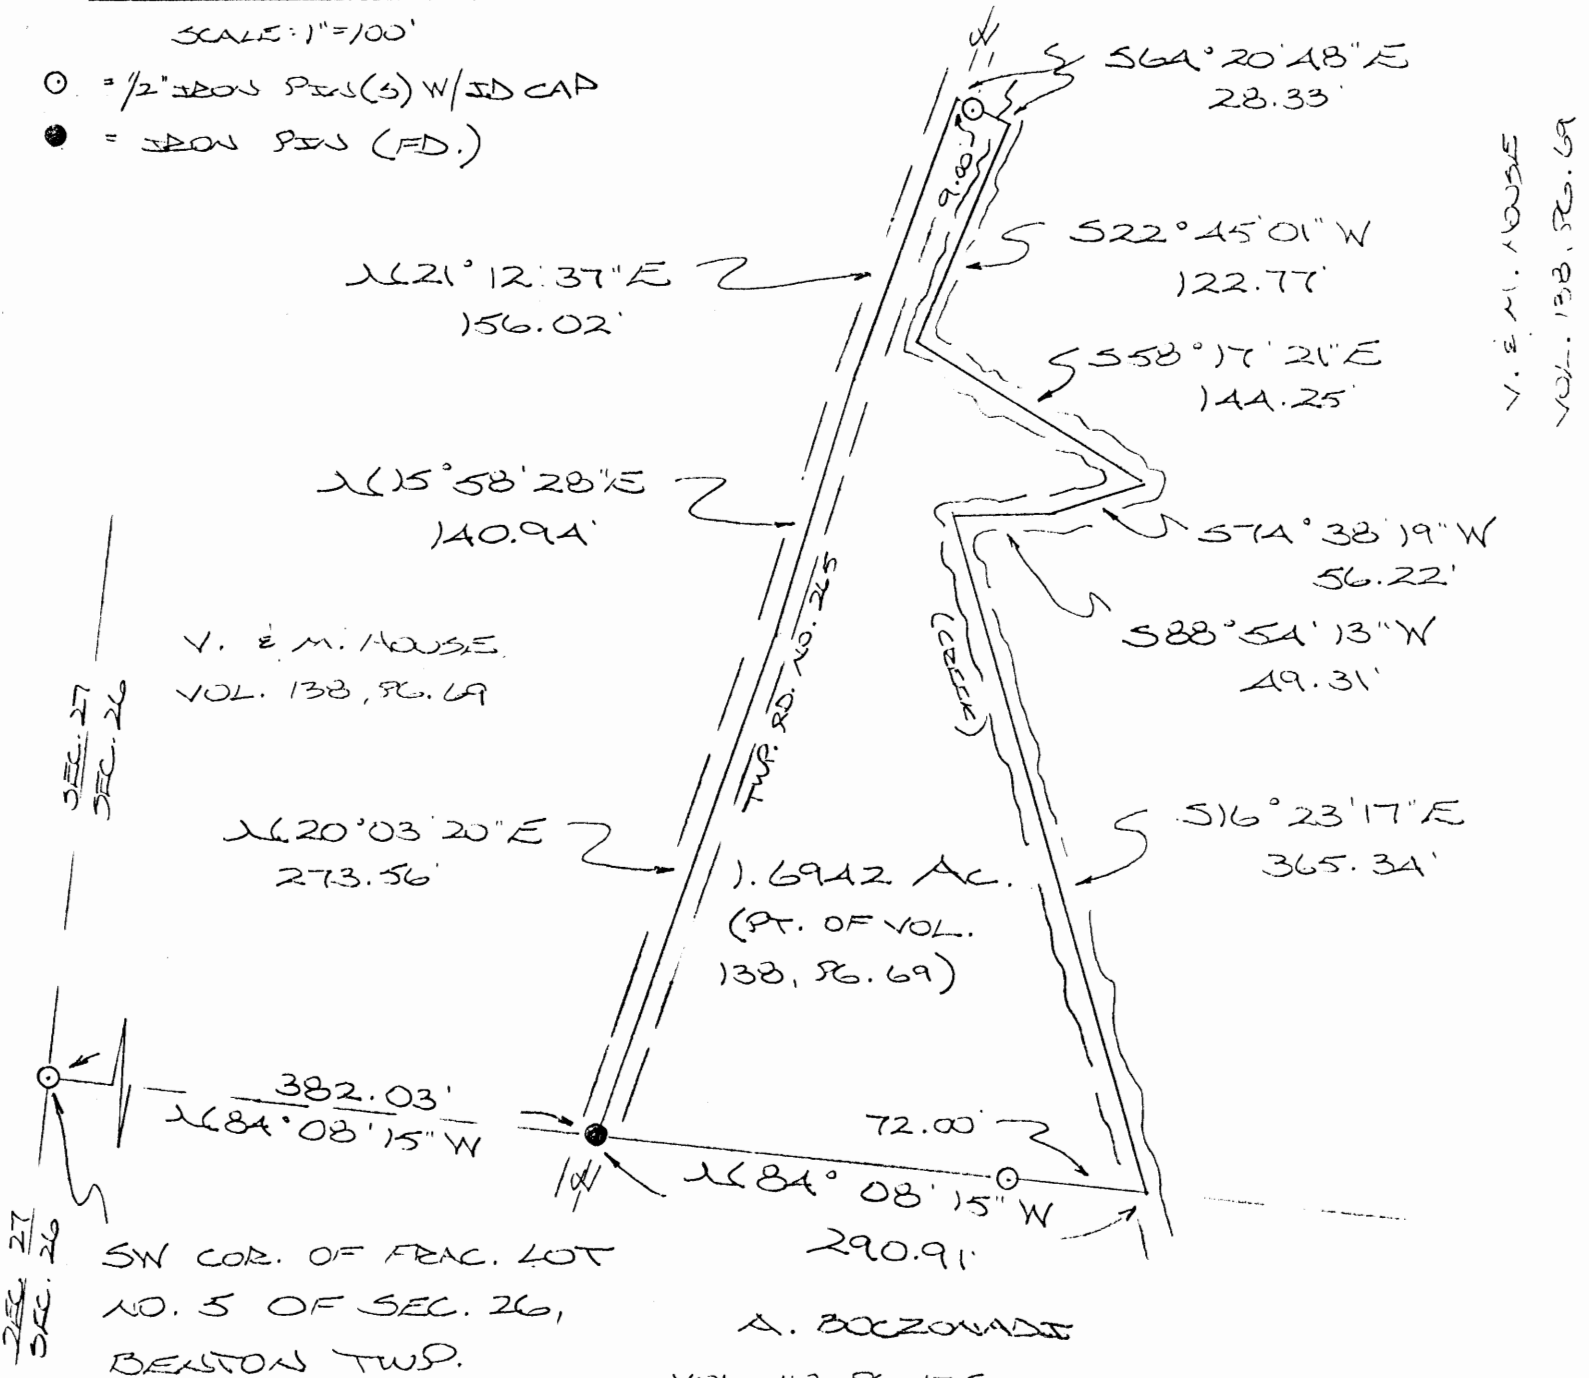 SCALE: 1"=100'
= 1/2" IRON PIN(S) W/ID CAP
= IRON PIN (FD.)
S64°20'48"E
28.33'
9.00'
V. & M. HOUSE
VOL. 138, PG. 69
S22°45'01"W
122.77'
N21°12'37"E
156.02'
S58°17'21"E
144.25'
N15°58'28"E
140.94'
S74°38'19"W
56.22'
S88°54'13"W
49.31'
TWP. RD. NO. 265
(CREEK)
V. & M. HOUSE
VOL. 138, PG. 69
SEC. 27
SEC. 26
N20°03'20"E
273.56'
S16°23'17"E
365.34'
1.6942 AC.
(PT. OF VOL.
138, PG. 69)
382.03'
N84°08'15"W
72.00'
N84°08'15"W
290.91'
SEC. 27
SEC. 26
SW COR. OF FRAC. LOT
NO. 5 OF SEC. 26,
BENTON TWP.
A. BOCZONADI